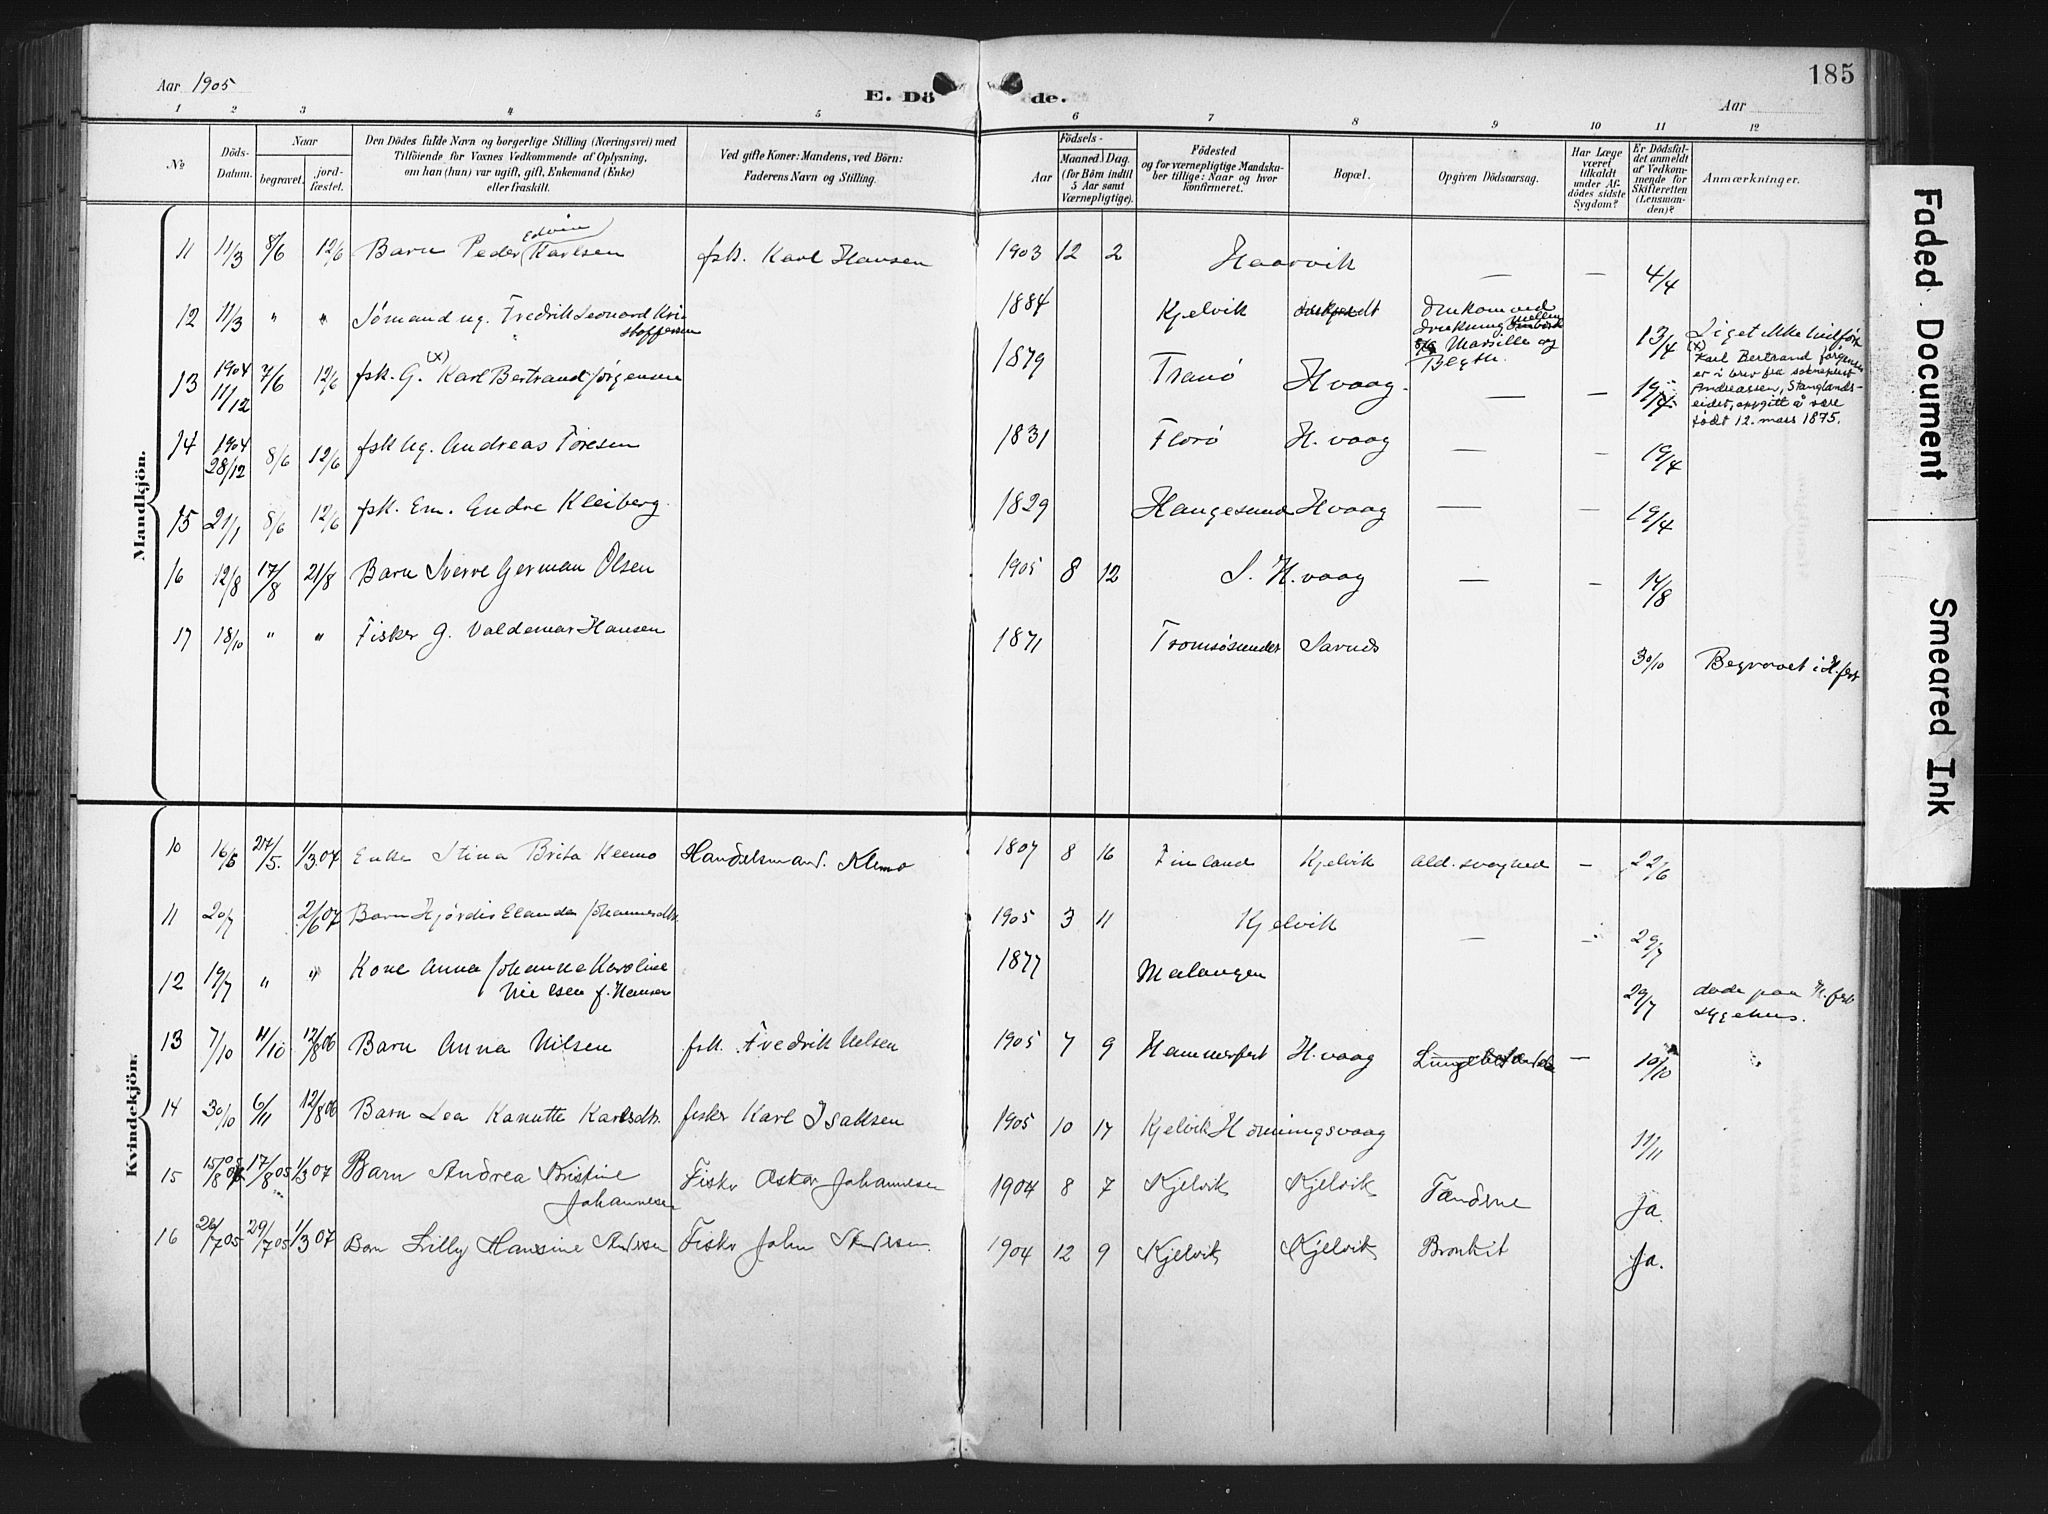 Aar 1905
E. Dö de.
185
Aar
1 2 3 4 5 6 7 8 9 10 11 12
No
Döds-Datum.
Naar
begravet.
jordfæstet.
Den Dödes fulde Navn og borgerlige Stilling (Næringsvei) med
Tilföiende for Voxnes Vedkommende af Oplysning,
om han (hun) var ugift, gift, Enkemand (Enke)
eller fraskilt.
Ved gifte Koner: Mandens, ved Börn:
Faderens Navn og Stilling.
Födsels-
Aar
Maaned. Dag.
(for Börn indtil
5 Aar samt
Værnepligtige).
Födested
og for værnepligtige Mandskaber
tillige: Naar og hvor
konfirmeret.
Bopæl.
Opgiven Dödsaarsag.
Har Læge
været
tilkaldt
under Afdödes
sidste
Sygdom?
Er Dödsfaldet
anmeldt
af Vedkommende
for
Skifteretten
(Lensmanden)?
Anmærkninger.
Mandkjön.
11 11/3 8/6 12/6 Barn Peder Edvin Karlsen fsk. Karl Hansen 1903 12 2 Haarvik — — 4/4
12 11/3 " " Sømand ug. Fredrik Leonard Kristoffersen 1884 Kjelvik Omkom ved drukning mellem Marsille og Blyth. 13/4 Liget ikke
13 1904 11/12 7/6 12/6 fsk. G. (x) Karl Bertrand Jørgensen 1879 Tranø H.vaag. — — 19/4 (x) Karl Bertrand Jørgensen
er i brev fra sokneprest
Andreassen, Stanglandseidet,
oppgitt å være
født 12. mars 1875.
14 1904 28/12 8/6 12/6 fsk ug. Andreas Toresen 1831 Florø H. vaag — — 19/4
15 21/1 8/6 12/6 fsk. Em. Endre Kleiberg. 1829 Haugesund H.vaag — — 19/4
16 12/8 17/8 21/8 Barn Sverre German Olsen 1905 8 12 S. H.vaag — — 14/8
17 18/10 " " Fisker G. Valdemar Hansen 1871 Tromsøsundet Sarnes 30/10 Begravet i H.fest
Kvindekjön.
10 16/5 27/5. 1/3 07 Enke Stina Brita Klemo Handelsmand. Klemo 1807 8 16 Finland Kjelvik Ald. svaghed — 22/6
11 20/7 2/6 07 Barn Hjørdis Elanda Johannesdtr. 1905 3 11 Kjelvik — 29/7
12 19/7 " " Kone Anna Johanne Karoline
Nielsen f. Hansen 1877 Malangen 29/7 døde paa H.fest
sygehus.
13 7/10 11/10 12/8 06 Barn Anna Nilsen fsk. Fredrik Nelsen 1905 7 9 Hammerfest H.vaag — 10/10
14 30/10 6/11 12/8 06 Barn Lea Kanutte Karlsdtr. fisker Karl Isaksen 1905 10 17 Kjelvik Honningsvaag 11/11
15 15/8 05 17/8 05 1/3 07 Barn Andrea Kristine
Johannesen Fisker Oskar Johannesen 1904 8 7 Kjelvik Kjelvik Tænderne Ja.
16 26/7 05 29/7 05 1/3 07 Barn Lilly Hansine Andersen Fisker John Andersen. 1904 12 9 Kjelvik Kjelvik Bronkit Ja.
Faded Document
Smeared Ink